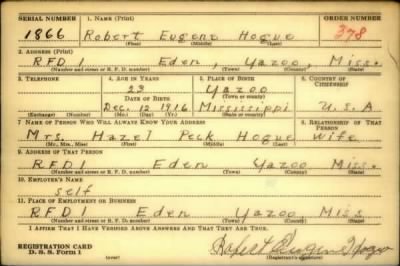 SERIAL NUMBER 1. NAME (Print) ORDER NUMBER
1866 Robert Eugene Hogue 378
(First) (Middle) (Last)
2. ADDRESS (Print)
RFD 1 Eden, Yazoo, Miss.
(Number and street or R. F. D. number) (Town) (County) (State)
3. TELEPHONE 4. AGE IN YEARS 5. PLACE OF BIRTH 6. COUNTRY OF CITIZENSHIP
23 Yazoo
DATE OF BIRTH (Town or county)
Dec. 12 1916 Mississippi U.S.A
(Exchange) (Number) (Mo.) (Day) (Yr.) (State or country)
7. NAME OF PERSON WHO WILL ALWAYS KNOW YOUR ADDRESS 8. RELATIONSHIP OF THAT PERSON
Mrs. Hazel Peck Hogue wife
(Mr., Mrs., Miss) (First) (Middle) (Last)
9. ADDRESS OF THAT PERSON
RFD1 Eden Yazoo Miss.
(Number and street or R. F. D. number) (Town) (County) (State)
10. EMPLOYER'S NAME
Self
11. PLACE OF EMPLOYMENT OR BUSINESS
RFD1 Eden Yazoo Miss
(Number and street or R. F. D. number) (Town) (County) (State)
I AFFIRM THAT I HAVE VERIFIED ABOVE ANSWERS AND THAT THEY ARE TRUE.
REGISTRATION CARD
D. S. S. Form 1 Robert Eugene Hogue
(Registrant's signature)